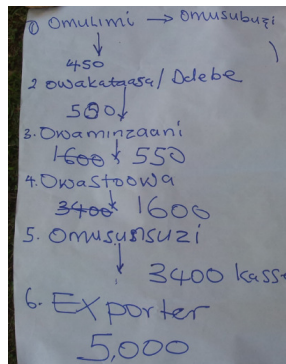 ① Omulimi → Omusubuzi
450
2 Owakatgasa/Ddebe
500
3. Owaminzaani
1600 550
4. Owastoowa
3400 1600
5. Omusunsuzi
3400 kass
6. EXporter
5,000